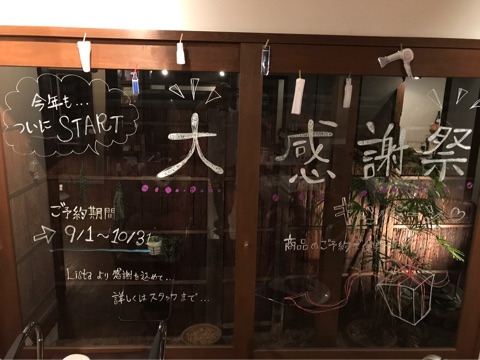 今年も...
ついにSTART
大感謝祭
ご予約期間
9/1～10/31
商品のご予約
Listaより感謝を込めて...
詳しくはスタッフまで...